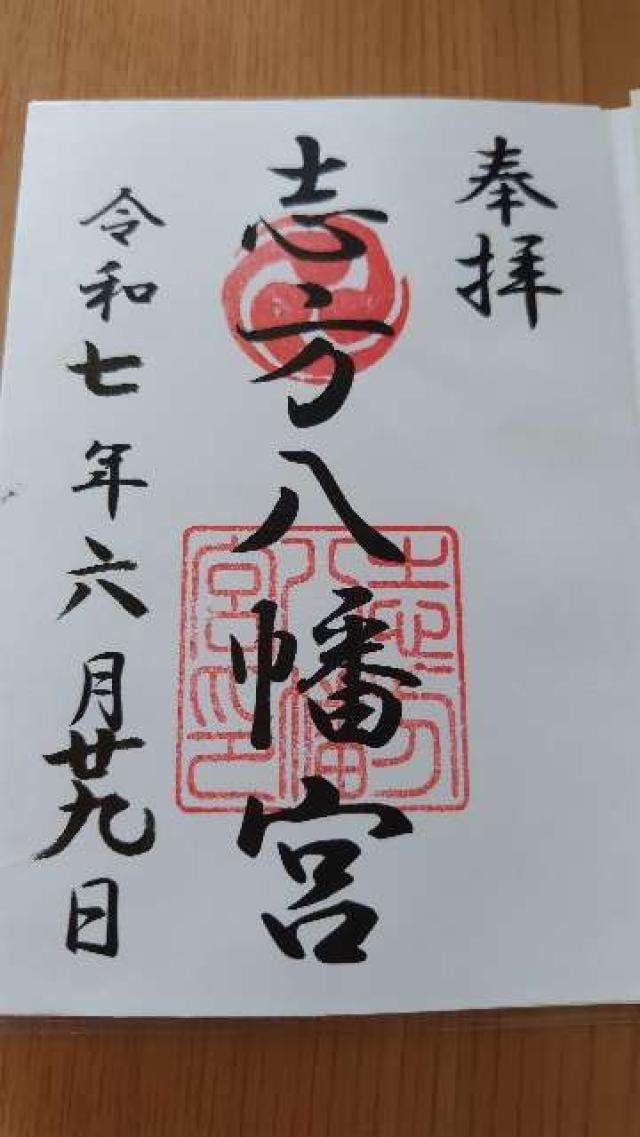 奉拝
志方八幡宮
志方八幡宮印
令和七年六月廿九日